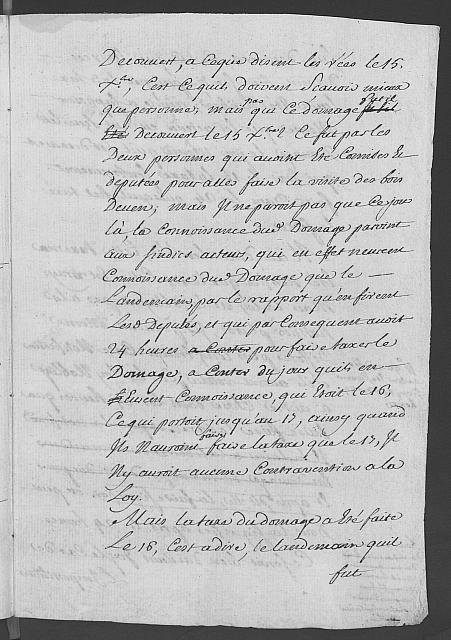 Decouvert, a Cequi disent les rées le 15.
Xbre, C'est ce quils doivent Scavoir mieux
que personne, mais par qui ce domage fut il
Decouvert le 15 Xbre? Ce fut par les
Deux personnes qui avoint été Comises &
deputées pour aller faire la visite des bois
Deven, mais Il ne paroit pas que Ce jour
là la Connoissance dud. Domage parvint
aux sindics acteurs, qui en effet neurent
Connoissance dud. Domage que le —
Landemain, par le rapport qu'en firent
Lesd. Deputés, et qui par Consequent avoit
24 heures a Conter pour faire taxer le
Domage, a Conter du jour quils en —
Eurent Connoissance, qui étoit le 16,
Ce qui portoit jusqu'au 17, ainsy quand
Ils Nauroint faire faire la taxe que le 17, Il
Ny auroit aucune Contravention a la
Loy.
Mais la taxe du domage a été faite
Le 16, C'est a dire, le landemain quil
fut